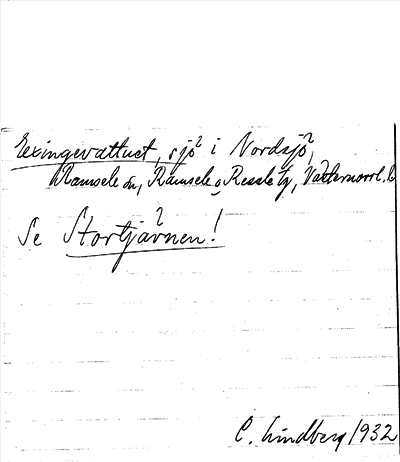 Eexingevattnet, sjö i Nordsjö,
Ramsele sn, Ramsele o Resele tg, Västernorrl. l.
Se Stortjärnen!
C. Lindberg 1932